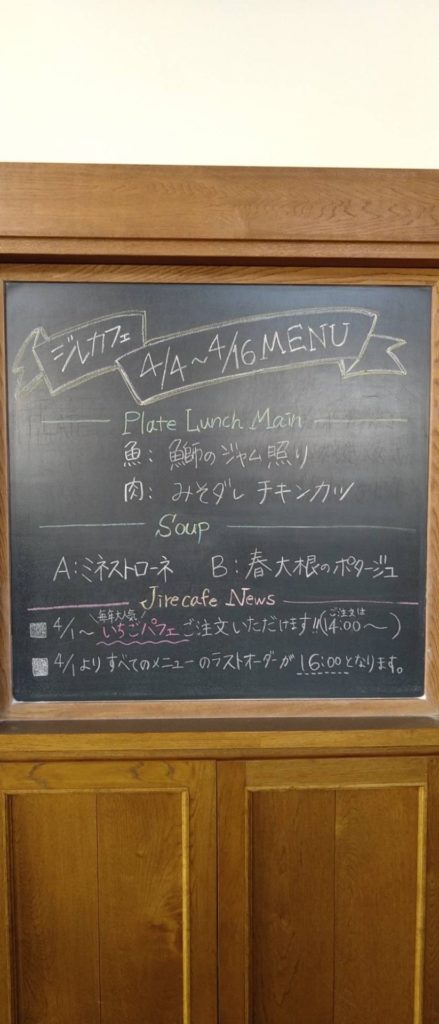 ジレカフェ 4/4～4/16 MENU
Plate Lunch Main
魚: 鰤のジャム照り
肉: みそダレ チキンカツ
Soup
A:ミネストローネ B:春大根のポタージュ
Jirecafe News
毎年大人気 ご注文は
4/1～いちごパフェご注文いただけます!!(14:00～)
4/1よりすべてのメニューのラストオーダーが16:00となります。